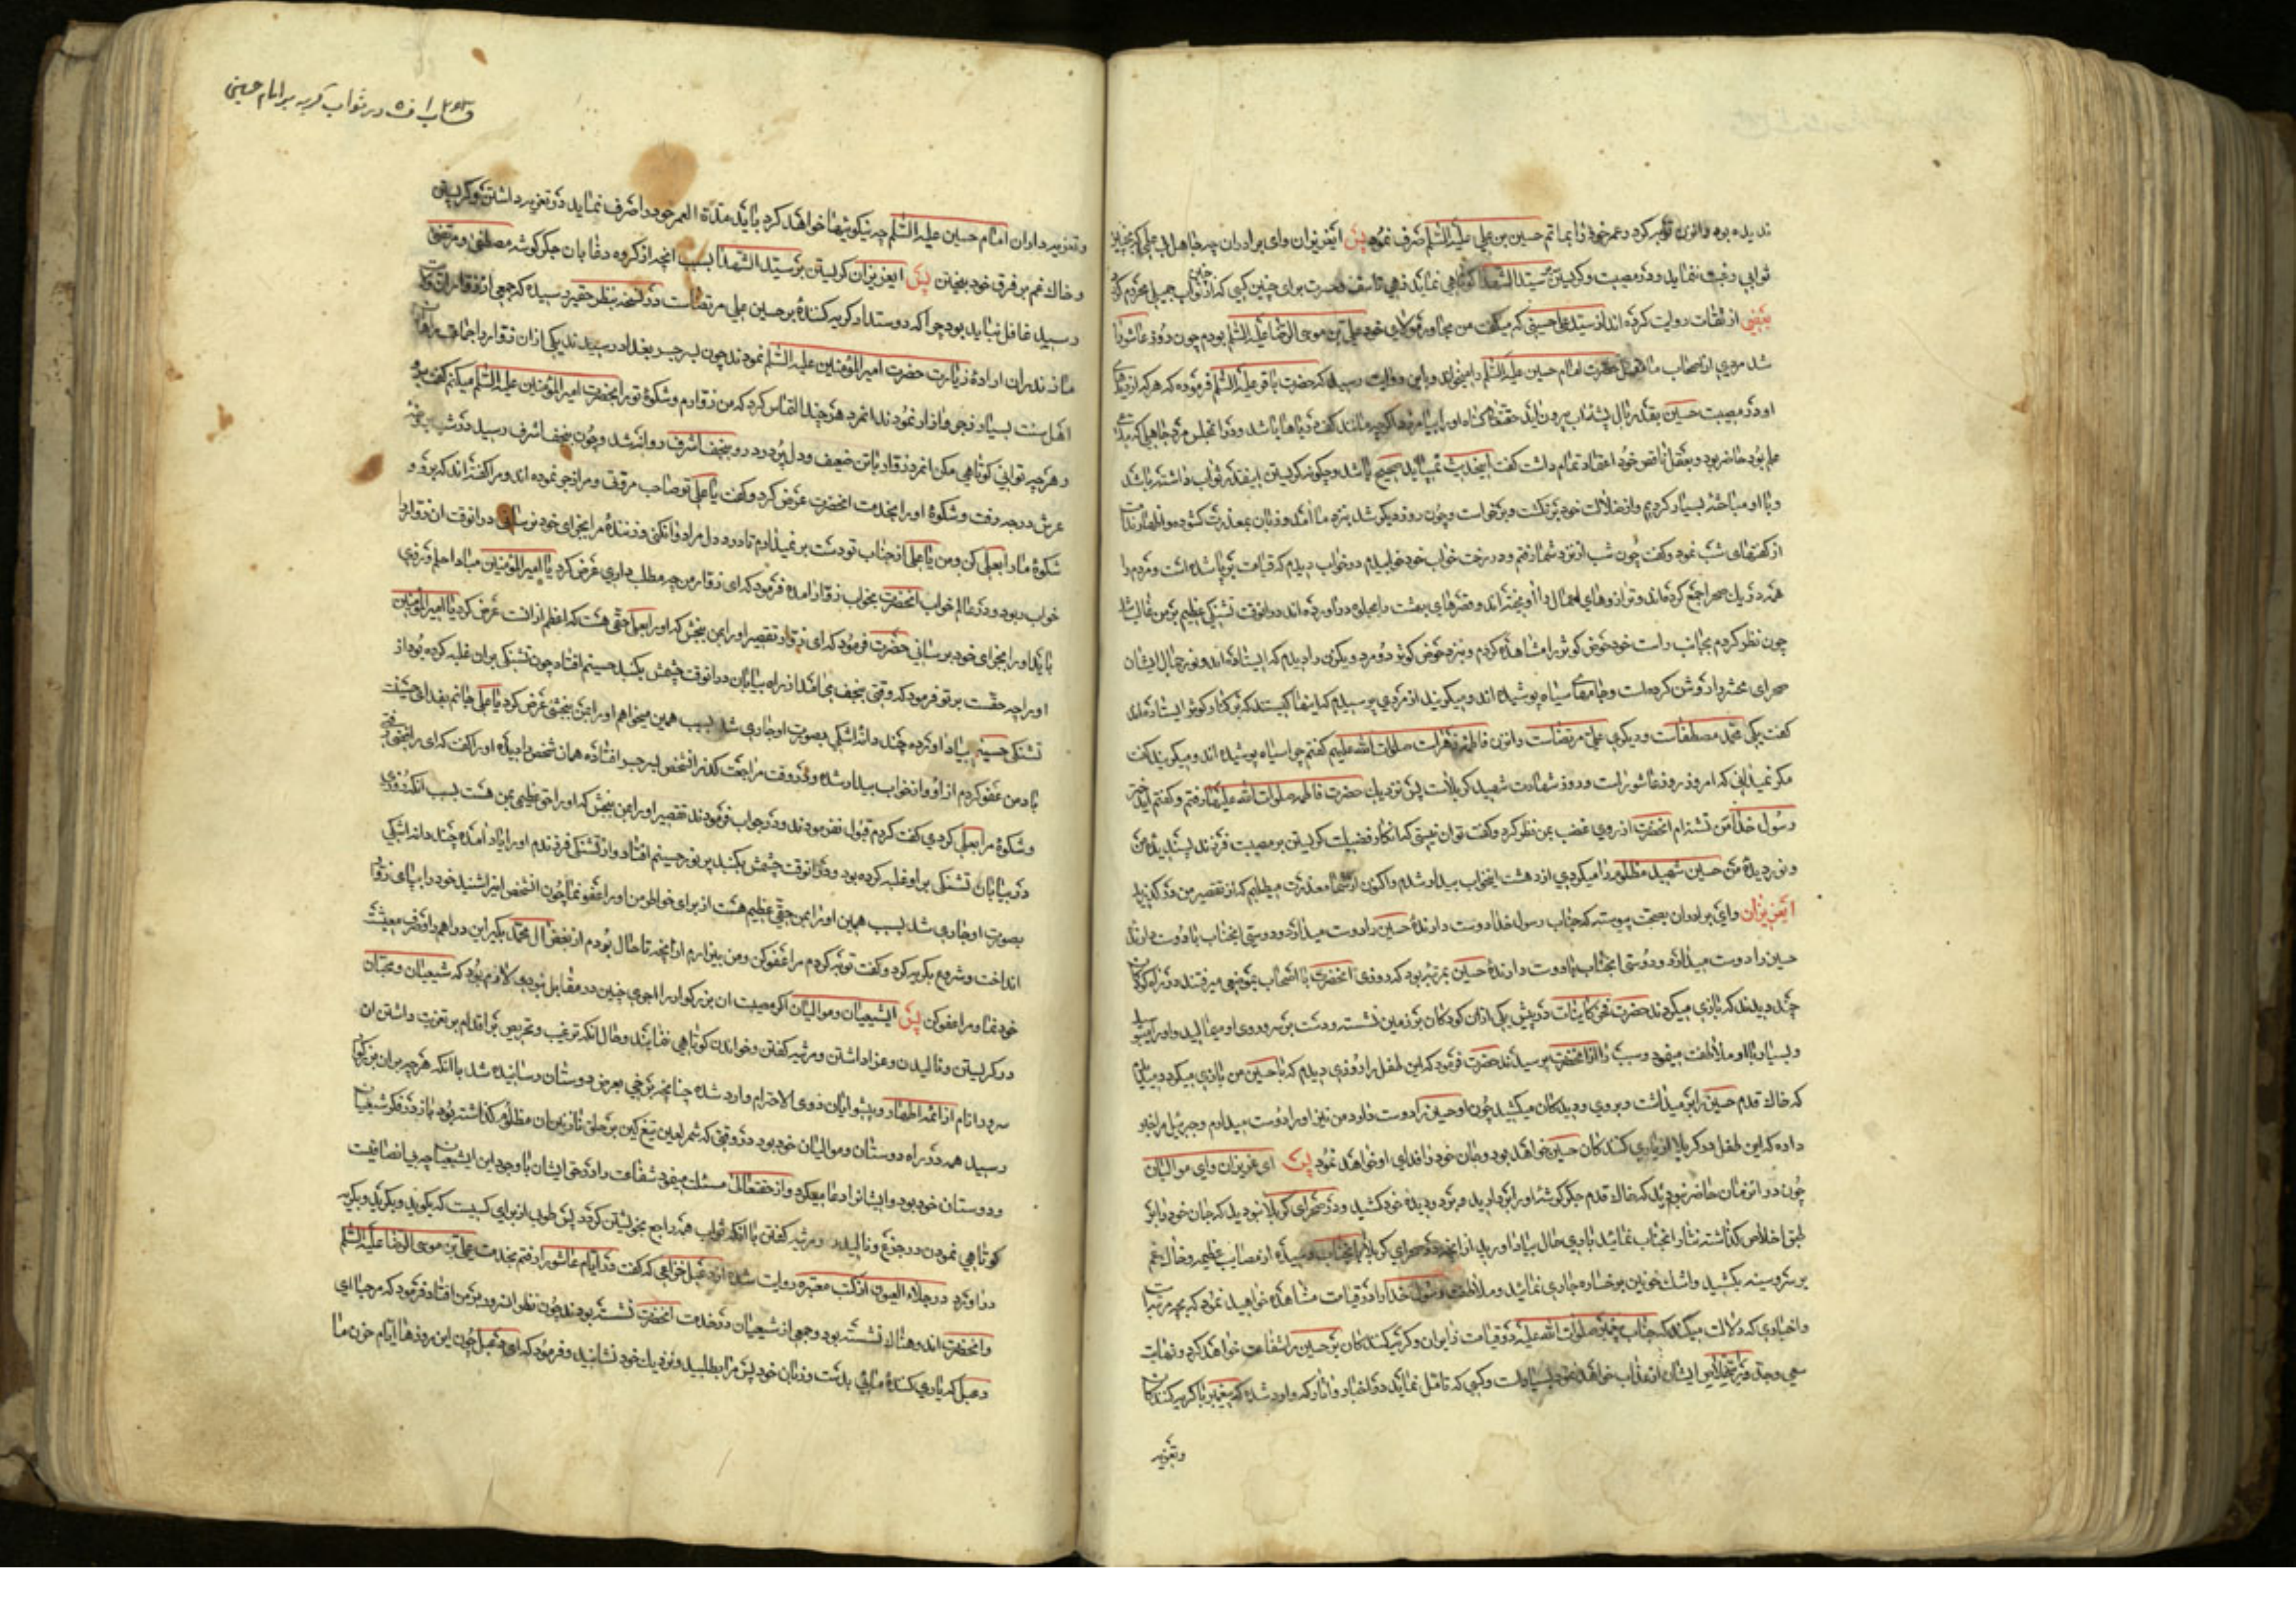 ندیده بود واوزن توبه کرد وعمر خود را بماتم حسین بن علی علیه السّلم صرف نمود پس ایعزیزان وای برادران چه جاهل
ثوابی رغبت ننماید ودر مصیبت وکریستن سیّد الشهدا کوتاهی نماید زهی تاسف وحسرت برای چنین کسی که از ثواب جمیل محروم
بعضی از ثقات روایت کرده اند از سیّد علی حسینی که میکفت من مجاور مولای خود علی بن موسی الرّضا علیه السّلم بودم چون روز عاشورا
شد مردی از اصحاب ما مقتل حضرت امام حسین علیه السّلم را میخواند وباین روایت رسید که حضرت باقر علیه السّلم فرموده که هرکه از
او در مصیبت حسین بقدر بال پشه اب بیرون اید حقتعالی کناه او را بیامرزد اکرچه مانند کف دریاها باشد ودر انمجلس مرد جاهلی که
علم بود حاضر بود وبعقل ناقص خود اعتقاد تمام داشت کفت اینحدیث نمیباید صحیح باشد وچکونه کریستن اینقدر ثواب داشته باشد
وبا او مباحثه بسیار کردیم واز ضلالت خود برنکشت وبرخواست وچون روز دیکر شد بنزد ما امد وزبان بمعذرت کشوده واظهار ندامت
از کفتهای شب نمود وکفت چون شب از نزد شما رفتم ودر رخت خواب خود خوابیدم در خواب دیدم که قیامت برپا شده است ومردم را
همه در یک صحرا جمع کرده‌اند وترازوهای اعمال را اویخته اند وقصرهای بهشت را بجلوه دراورده اند ودرانوقت تشنکی عظیم بر من غالب شد
چون نظر کردم بجانب راست خود حوض کوثر را مشاهده کردم وبنزد حوض کوثر دو مرد ویکزن را دیدم که ایستاده اند ونور جمال ایشان
صحرای محشر را روشن کرده است وجامهای سیاه پوشیده اند ومیکریند از مردی پرسیدم که اینها کیستند که بر کنار کوثر ایستاده‌اند
کفت یکی محمّد مصطفی است ودیکری علی مرتضی است واوزن فاطمه زهرا است صلوات الله علیهم کفتم چرا سیاه پوشیده اند ومیکریند کفت
مکر نمیدانی که امروز روز عاشورا است وروز شهادت شهید کربلا است پس نزدیک حضرت فاطمه صلوات الله علیها رفتم وکفتم ایدختر
رسول خدا من تشنه ام انحضرت از روی غضب بمن نظر کرد وکفت تو ان نیستی که انکار فضیلت کریستن بر مصیبت فرزند پسندیده من
ونور دیدۀ من حسین شهید مظلوم را میکردی از دهشت ازخواب بیدار شدم واکنون از شما معذرت میطلبم که از تقصیر من درکذرید
ایعزیزان وای برادران بصحّت پیوسته که جناب رسول خدا دوست دارندۀ حسین را دوست میدارد ودوستی انجناب با دوست دارندۀ
حسین را دوست میدارد ودوستی انجناب بادوست دارندۀ حسین بمرتبه بود که روزی انحضرت با اصحاب بموضعی میرفتند در راه کودکان
چند دیدند که بازی میکردند حضرت فخر کاینات در پیش یکی از ان کودکان بر زمین نشسته ودست بر سر وروی او میمالید واورا میبوسید
وبسیار با او ملاطفت میفرمود سبب را از انحضرت پرسیدند حضرت فرمود که این طفل را روزی دیدم که با حسین من بازی میکرد ومیدیدم
که خاک قدم حسین را بر میداشت وبر روی ودیدکان میکشید چون او حسین را دوست دارد من نیز او را دوست میدارم وجبرئیل مرا خبر
داده که این طفل در کربلا از یاری کنندکان حسین خواهد بود وجان خود را فدای او خواهد نمود پس ای عزیزان وای موالیان
چون در انزمان حاضر نبودید که خاک قدم جکر کوشۀ او را بردارید وبر رو ودیدۀ خود کشید ودر صحرای کربلا نبودید که جان خود را بر
طبق اخلاص کذاشته نثار انجناب نمائید باری حال بیاد اورید از انچه در صحرای کربلا بانجناب رسیده از مصایب عظیمه وخاک غم
بر سر وسینه بکشید واشک خونین بر رخساره جاری نمائید وملاطفت رسول خدا را در قیامت مشاهده خواهید نمود که بچه مرتبه است
واخباری که دلالت میکند که جناب پیغمبر صلوات الله علیه در قیامت زایران وکریه کنندکان بر حسین را شفاعت خواهد کرد ونهایت
سعی وجد در استخلاص ایشان از عذاب خواهد نمود بسیار است وکسی که تامّل نماید در اخبار واثار که وارد شده که پیغمبر با کریه کنندکان
وتعزیه
در ثواب کریه بر امام حسین
وتعزیه داران امام حسین علیه السّلم چه نیکوئیها خواهد کرد باید مدّة العمر خود را صرف نماید در تعزیه داشتن وکریستن
وخاک غم بر فرق خود بیختن پس ایعزیزان کریستن بر سیّد الشهدا بسبب انچه از کروه دغا بان جکر کوشه مصطفی ومرتضی
رسید غافل نباید بود چرا که دوستدار کریه کنندۀ بر حسین علی مرتضی است در نسخه بنظر حقیر رسیده که جمعی از زوار
مازندران ارادۀ زیارت حضرت امیر المؤمنین علیه السّلم نمودند چون بر جسر بغداد رسیدند یکی از ان زوار را
اهل سنت بسیار زجر وازار نمودند انمرد هرچند التماس کرد که من زوارم وشکوۀ تو را بحضرت امیر المؤمنین علیه السّلم میکنم کفت برو
وهرچه توانی کوتاهی مکن انمرد زوار با تن ضعیف ودل پردرد رو بنجف اشرف روانه شد وچون بنجف اشرف رسید در شب
عرش درجه رفت وشکوۀ او را بخدمت انحضرت عرض کرد وکفت یا علی تو صاحب مروتی ومرا زجر نموده اند ومرا کفته اند که برو و
شکوۀ ما را بعلی کن ومن یا علی از جناب تو دست برنمیدارم تا درد دل مرا دوا نکنی وزنندۀ مرا بجزای خود نرسانی درانوقت ان زوار را
خواب ربود ودر عالم خواب انحضرت بخواب زوار امده فرمود که ای زوار من چه مطلب داری عرض کرد یا امیر المؤمنین
باید او را بجزای خود برسانی حضرت فرمود که ای زوار تقصیر او را بمن ببخش که او را بما حقی هست که اعظم از انست عرض کرد یا امیر المؤمنین
او را چه حقّست بر تو فرمود که وقتی بنجف می امد از راه بیابان درانوقت چشمش بکنبد حسینم افتاد چون تشنکی بران غلبه کرده بود از
تشنکی حسینم بیاد اورده چند دانه اشکی بصورت او جاری شد بسبب همین میخواهم او را بمن ببخشی عرض کرد یا علی جانم بفدای حسینت
باد من عفو کردم از او واز خواب بیدار شده ودر وقت مراجعت کذر انشخص بر جسر افتاده همان شخص را دیده او را کفت که ای رافضی رفتی
وشکوۀ مرا بعلی کردی کفت کردم قبول نفرمودند ودر جواب فرمودند تقصیر او را بمن ببخش که او را حق عظیمی بمن هست بسبب انکه روزی
در بیابان تشنکی بر او غلبه کرده بود ودرانوقت چشمش بکنبد پرنور حسینم افتاد واز تشنکی فرزندم او را یاد امده چند دانه اشکی
بصورت او جاری شد بسبب همین او را بمن حقی عظیم هست از برای خواطر من او را عفو نما چون انشخص این را شنید خود را بپای زوار
انداخت وشروع بکریه کرد وکفت توبه کردم مرا عفو کن ومن بیزارم از انچه تا حال بودم از بغض ال محمّد بکیر این دراهم را
خود نما ومرا عفو کن پس ایشیعیان وموالیان اکر مصیبت ان بزرکوار را اجری چنین در مقابل نبودی لازم بود که شیعیان ومحبّان
در کریستن ونالیدن وعزا داشتن ومرثیه کفتن وخواندن کوتاهی ننمایند وحال انکه ترغیب وتحریص بر اقدام بر تعزیت داشتن ان
سرور انام از ائمه اطهار وپیشوایان ذوی الاحترام وارد شده چنانچه برخی بعرض دوستان رسانیده شد با انکه هرچه بران بزرکوار
رسید همه در راه دوستان وموالیان خود بود در وقتی که شمر لعین تیغ کین بر حلق نازنین ان مظلوم کذاشته بود باز در فکر شیعیان
ودوستان خود بود وایشانرا دعا میکرد واز حقتعالی مسئلت میفرمود شفاعت را در حق ایشان با وجود این ایشیعیان چه بی انصافیست
کوتاهی نمودن در جزع ونالیدن ومرثیه کفتن با انکه ثواب همه راجع بخویشتن کردد پس طوبی از برای کسیست که بکوید وبکرید وبکریاند
در اورد در جلاء العیون از کتب معتبره روایت شده از دعبل خزاعی که کفت در ایام عاشورا رفتم بخدمت علی بن موسی الرضا علیه السّلم
وانحضرت اندوهناک نشسته بود وجمعی از شیعیان در خدمت انحضرت نشسته بودند چون نظر انسرور بر من افتاد فرمود که مرحبا ای
دعبل که یاری کنندۀ مائی بدست وزبان خود پس مرا بطلبید ونزدیک خود نشانید وفرمود که ای دعبل چون این روزها ایام حزن ما